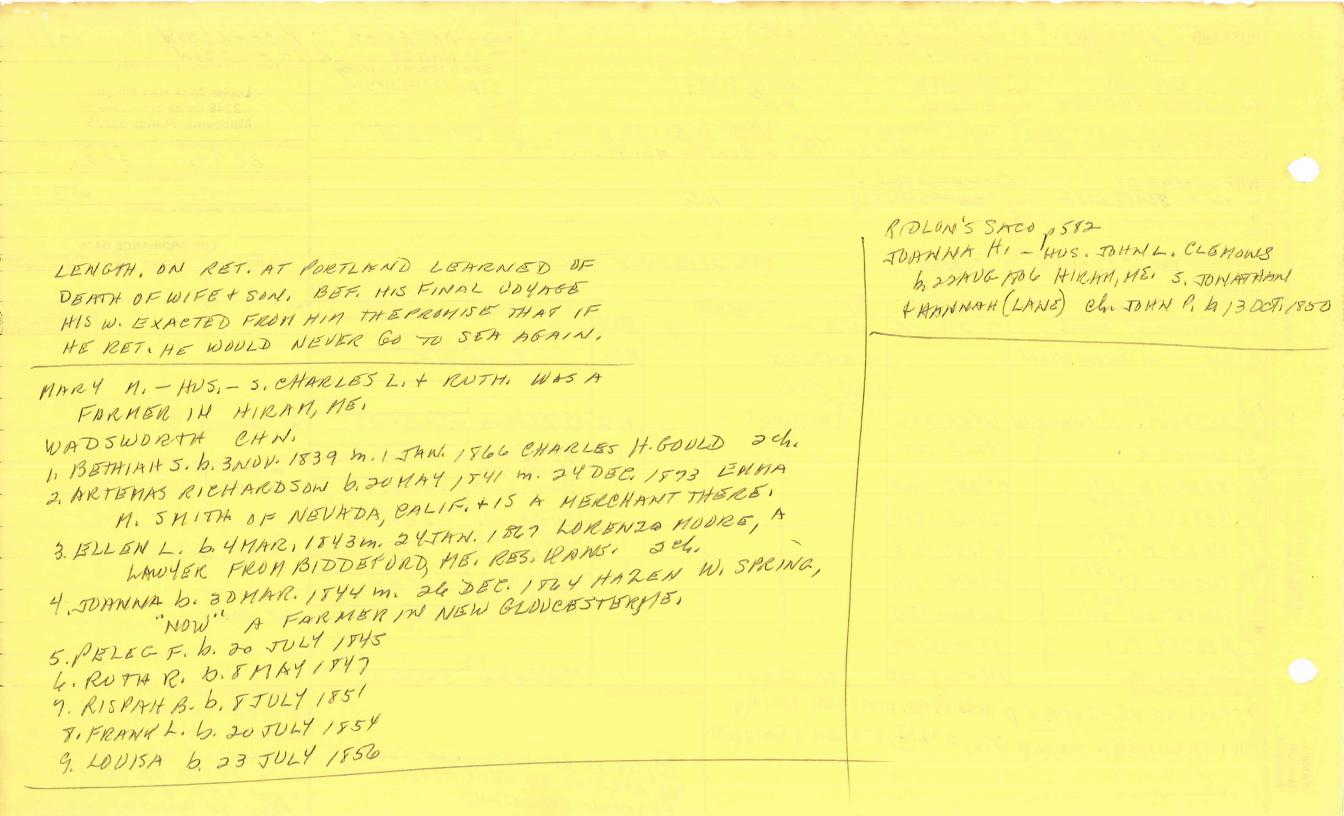 LENGTH. ON RET. AT PORTLAND LEARNED OF
DEATH OF WIFE + SON. BEF. HIS FINAL VOYAGE
HIS W. EXACTED FROM HIM THE PROMISE THAT IF
HE RET. HE WOULD NEVER GO TO SEA AGAIN.
MARY M. – HUS. – S. CHARLES L. + RUTH. WAS A
FARMER IN HIRAM, ME.
WADSWORTH CHN.
1. BETHIAH S. b. 3 NOV. 1839 m. 1 JAN. 1866 CHARLES H. GOULD 2 ch.
2. ARTEMAS RICHARDSON b. 20 MAY 1841 m. 24 DEC. 1873 EMMA
M. SMITH OF NEVADA, CALIF. + IS A MERCHANT THERE.
3. ELLEN L. b. 4 MAR. 1843 m. 24 JAN. 1867 LORENZO MOORE, A
LAWYER FROM BIDDEFORD, ME. RES. KANS. 2 ch.
4. JOANNA b. 30 MAR. 1844 m. 26 DEC. 1864 HAZEN W. SPRING,
"NOW" A FARMER IN NEW GLOUCESTER, ME.
5. PELEG F. b. 20 JULY 1845
6. RUTH R. b. 8 MAY 1847
7. RISPAH B. b. 8 JULY 1851
8. FRANK L. b. 20 JULY 1854
9. LOUISA b. 23 JULY 1856
RIDLON'S SACO p 582
JOANNA H. – HUS. JOHN L. CLEMONS
b. 22 AUG HIRAM, ME. S. JONATHAN
+ HANNAH (LANE) Ch. JOHN P. b 13 OCT. 1850